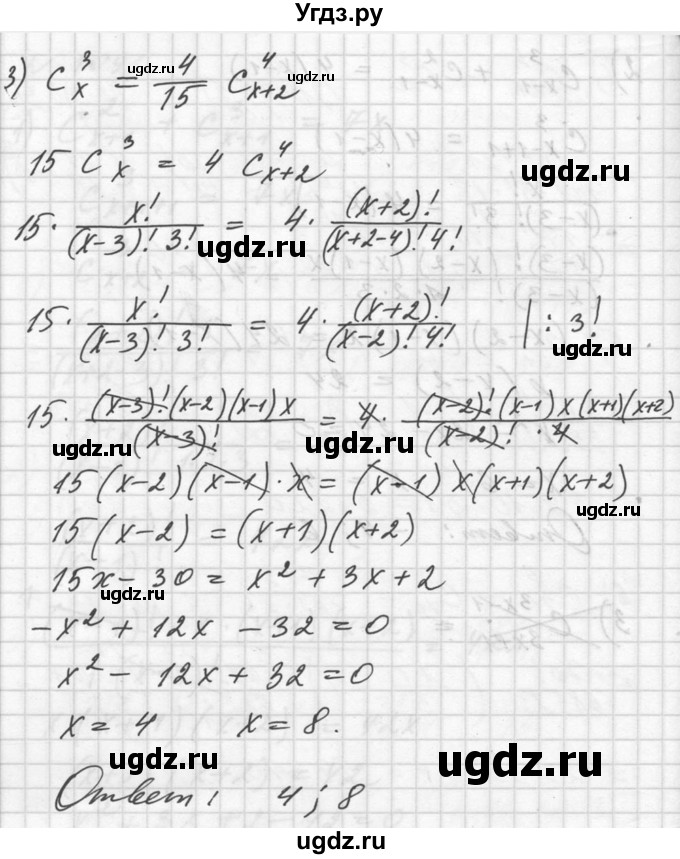 Угдз.ру
3) C_x^3 = 4/15 C_{x+2}^4
ugdz.ru ugdz.ru
15 C_x^3 = 4 C_{x+2}^4
ugdz.ru
15 · x!/((x-3)! 3!) = 4 · (x+2)!/((x+2-4)! 4!)
ugdz.ru ugdz.ru
15 · x!/((x-3)! 3!) = 4 · (x+2)!/((x-2)! 4!) | : 3!
ugdz.ru
15 · (x-3)! (x-2)(x-1) x/(x-3)! = 4 · (x-2)! (x-1) x (x+1)(x+2)/((x-2)! · 4)
ugdz.ru ugdz.ru
15 (x-2)(x-1) · x = (x-1) x (x+1)(x+2)
ugdz.ru
15 (x-2) = (x+1)(x+2)
15x - 30 = x² + 3x + 2
ugdz.ru
-x² + 12x - 32 = 0
x² - 12x + 32 = 0
x = 4 x = 8.
ugdz.ru ugdz.ru
Ответ: 4; 8
ugdz.ru